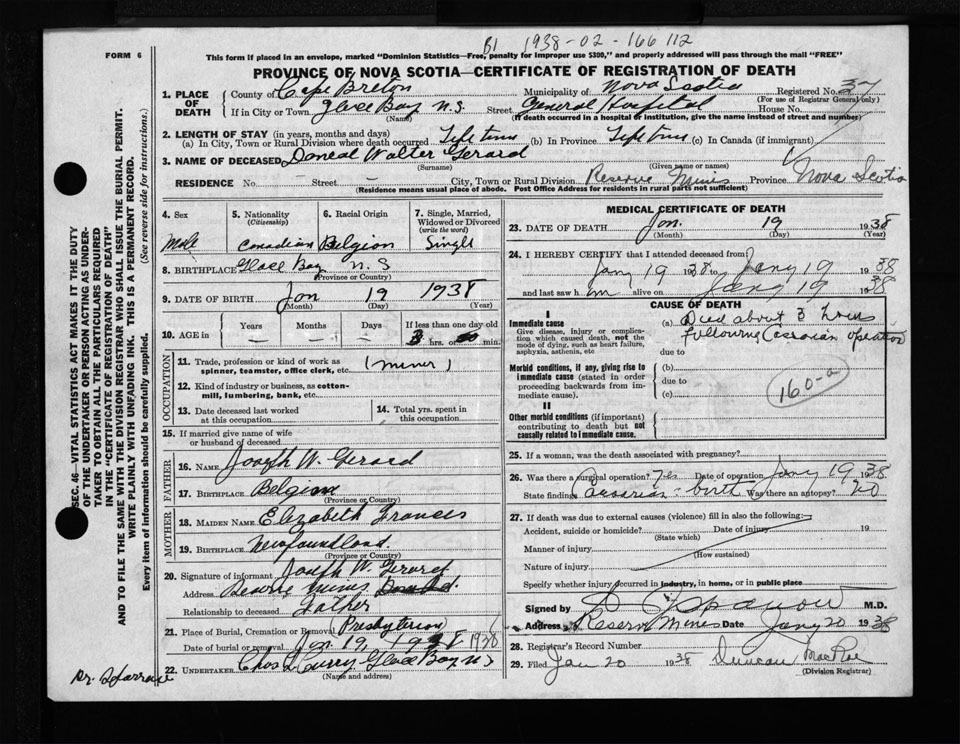 B1 1938-02-166 112
FORM 6
This form if placed in an envelope, marked "Dominion Statistics—Free, penalty for improper use $300," and properly addressed will pass through the mail "FREE"
PROVINCE OF NOVA SCOTIA—CERTIFICATE OF REGISTRATION OF DEATH
1. PLACE OF DEATH
County of Cape Breton Municipality of Nova Scotia Registered No. 37
(For use of Registrar General only)
If in City or Town Glace Bay N.S. Street General Hospital House No.
(Name) (If death occurred in a hospital or institution, give the name instead of street and number)
2. LENGTH OF STAY (in years, months and days)
(a) In City, Town or Rural Division where death occurred Life time (b) In Province Life time (c) In Canada (if immigrant)
3. NAME OF DECEASED Doneal Walter Gerard
(Surname) (Given name or names)
RESIDENCE No. Street City, Town or Rural Division Reserve Mines Province Nova Scotia
(Residence means usual place of abode. Post Office Address for residents in rural parts not sufficient)
SEC. 46—VITAL STATISTICS ACT MAKES IT THE DUTY
OF THE UNDERTAKER OR PERSON ACTING AS UNDER-
TAKER TO OBTAIN ALL THE PARTICULARS REQUIRED
IN THE "CERTIFICATE OF REGISTRATION OF DEATH"
AND TO FILE THE SAME WITH THE DIVISION REGISTRAR WHO SHALL ISSUE THE BURIAL PERMIT.
WRITE PLAINLY WITH UNFADING INK. THIS IS A PERMANENT RECORD.
Every item of information should be carefully supplied. (See reverse side for instructions.)
4. Sex
Male
5. Nationality
(Citizenship)
Canadian
6. Racial Origin
Belgian
7. Single, Married,
Widowed or Divorced
(write the word)
Single
8. BIRTHPLACE Glace Bay N.S
(Province or Country)
9. DATE OF BIRTH Jan 19 1938
(Month) (Day) (Year)
10. AGE in
Years Months Days If less than one day old
3 hrs. min.
OCCUPATION
11. Trade, profession or kind of work as
spinner, teamster, office clerk, etc. (miner)
12. Kind of industry or business, as cotton-
mill, lumbering, bank, etc.
13. Date deceased last worked
at this occupation
14. Total yrs. spent in
this occupation
15. If married give name of wife
or husband of deceased
FATHER
16. NAME Joseph W. Gerard
17. BIRTHPLACE Belgian
(Province or Country)
MOTHER
18. MAIDEN NAME Elizabeth Frances
19. BIRTHPLACE Newfoundland
(Province or Country)
20. Signature of informant Joseph W. Gerard
Address Reserve Mines
Relationship to deceased Father
21. Place of Burial, Cremation or Removal (Presbyterian)
Date of burial or removal Jan. 19, 1938 1938
22. UNDERTAKER Chas L Curry Glace Bay N.S
(Name and address)
MEDICAL CERTIFICATE OF DEATH
23. DATE OF DEATH Jan. 19 1938
(Month) (Day) (Year)
24. I HEREBY CERTIFY that I attended deceased from
Jany 19 1938 to Jany 19 1938
and last saw him alive on Jany 19 1938
CAUSE OF DEATH
I
Immediate cause
Give disease, injury or complica-
tion which caused death, not the
mode of dying, such as heart failure,
asphyxia, asthenia, etc
(a) Died about 3 hours
following Caesarian operation
due to
Morbid conditions, if any, giving rise to
immediate cause (stated in order
proceeding backwards from im-
mediate cause).
(b)
due to
(c)
160-a
II
Other morbid conditions (if important)
contributing to death but not
causally related to immediate cause.
25. If a woman, was the death associated with pregnancy?
26. Was there a surgical operation? Yes Date of operation Jany 19 1938
State finding Cesarian - birth Was there an autopsy? No
27. If death was due to external causes (violence) fill in also the following:
Accident, suicide or homicide? Date of injury 19
(State which)
Manner of injury
(How sustained)
Nature of injury
Specify whether injury occurred in industry, in home, or in public place
Signed by M.D.
Address Reserve Mines Date Jany 20 1938
28. Registrar's Record Number
29. Filed Jan 20 1938 Duncan MacRae
(Division Registrar)